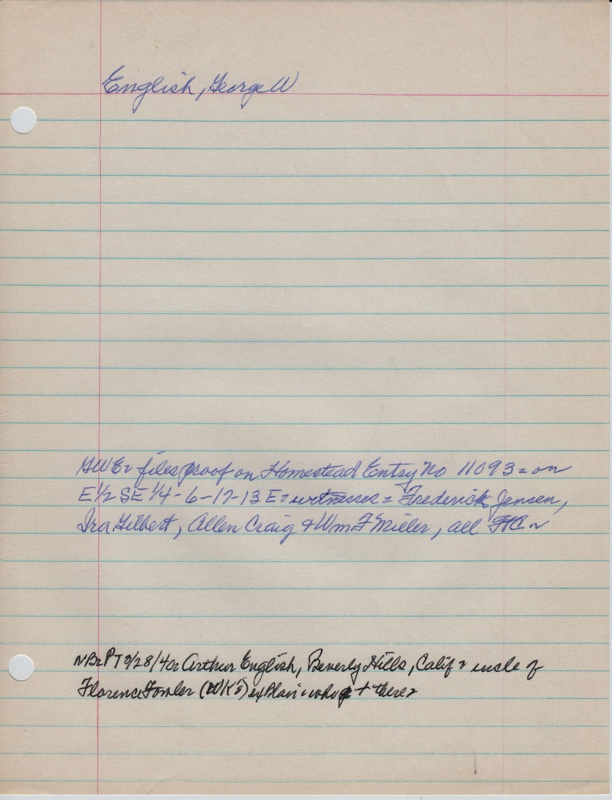 English, George W
GWE= files proof on Homestead Entry No 11093= on
E 1/2 SE 1/4 - 6-17-13 E= witnesses = Frederick Jensen,
Ira Gilbert, Allen Craig & Wm F Mieler, all
9/28/40= Arthur English, Beverly Hills, Calif = uncle of
Florence Fowler ( + there=